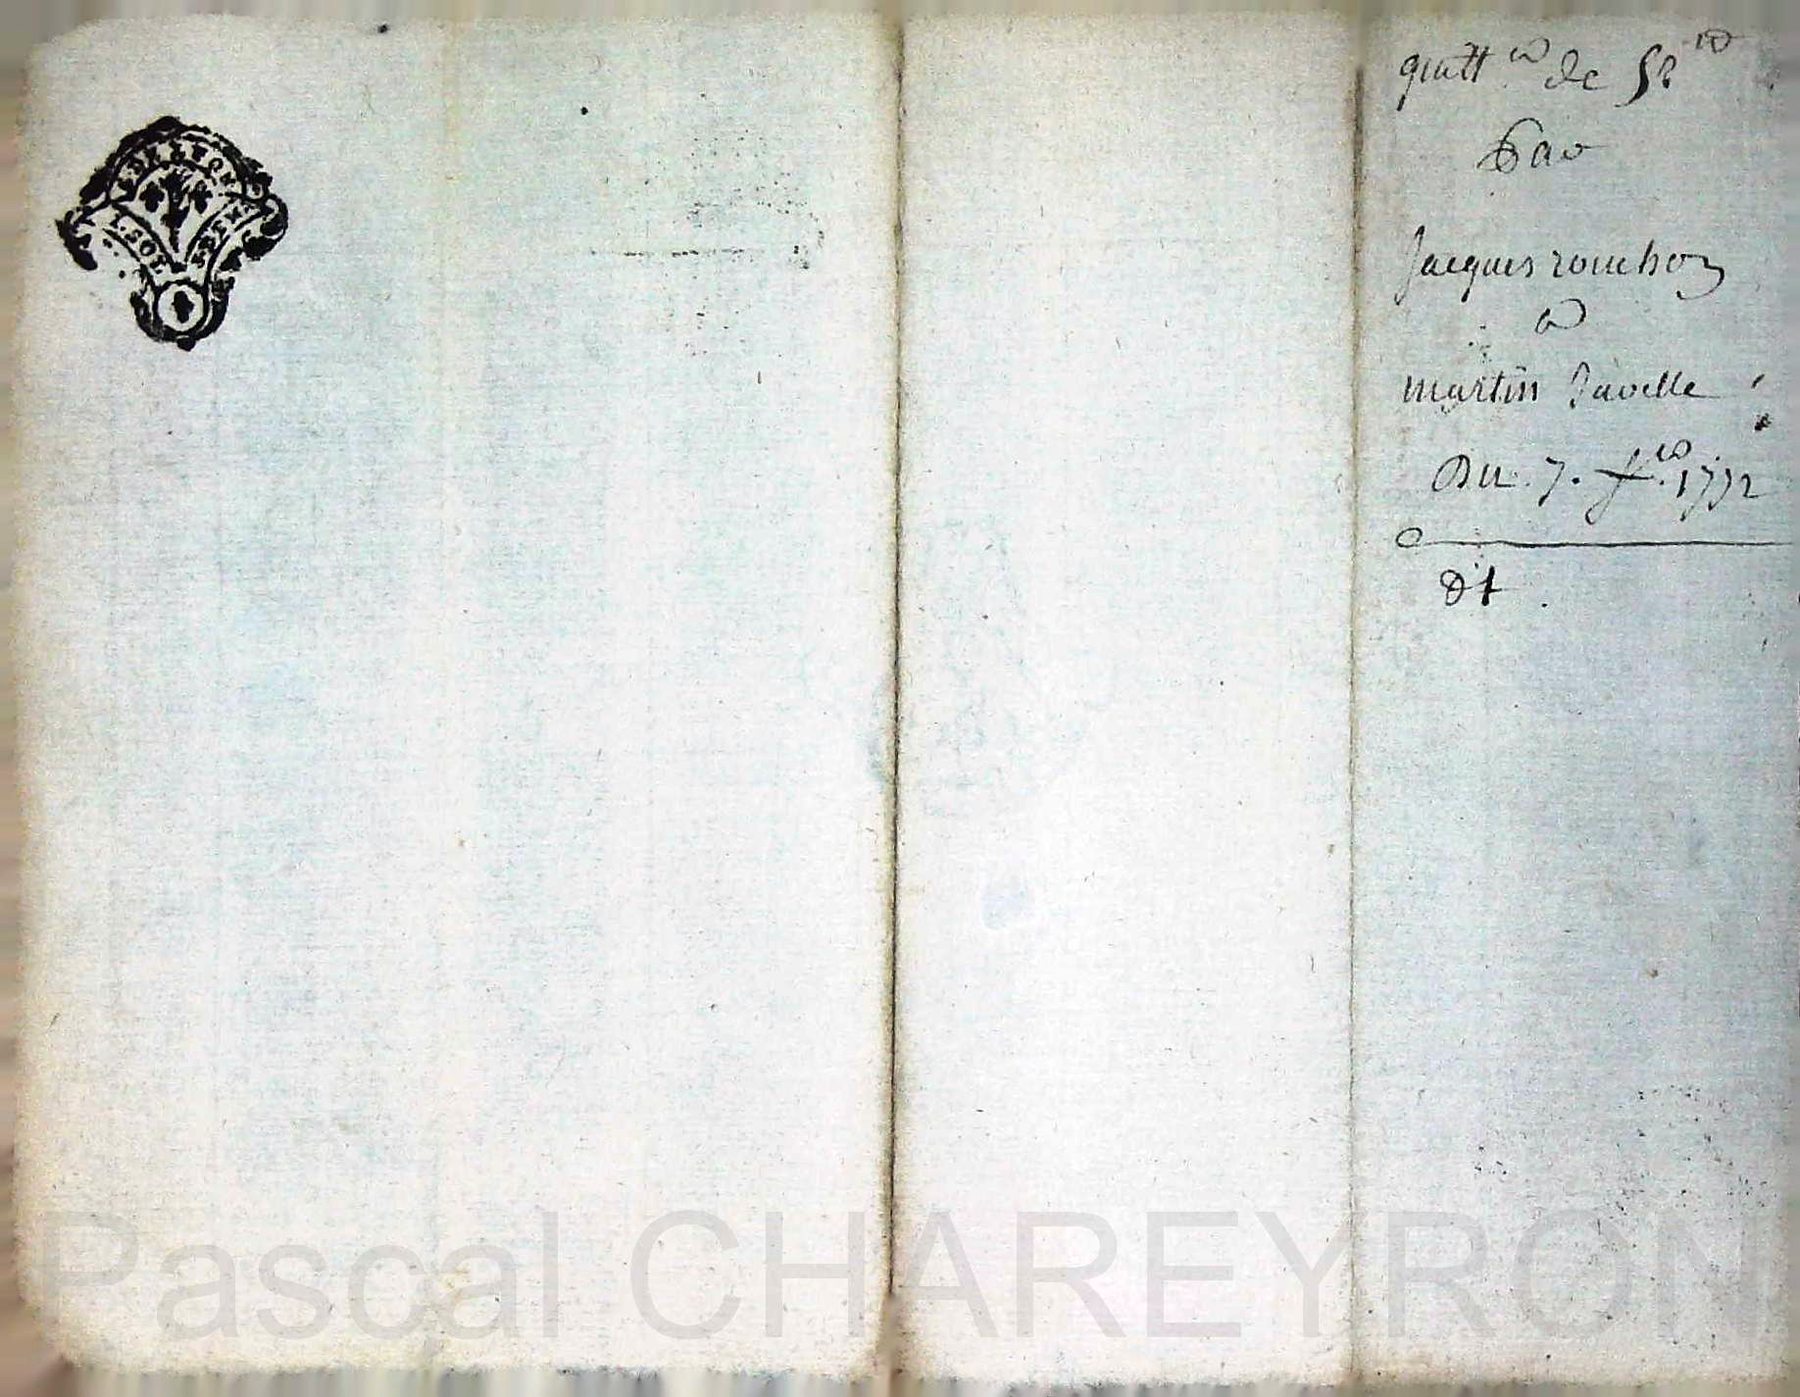 quitt ce de 58 lt
Par
Jacques rouchon
a
martin Favelle
Du 7. f re 1772
Pascal CHAREYRON